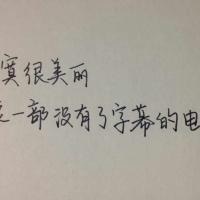 寞很美丽
一部没有了字幕的电